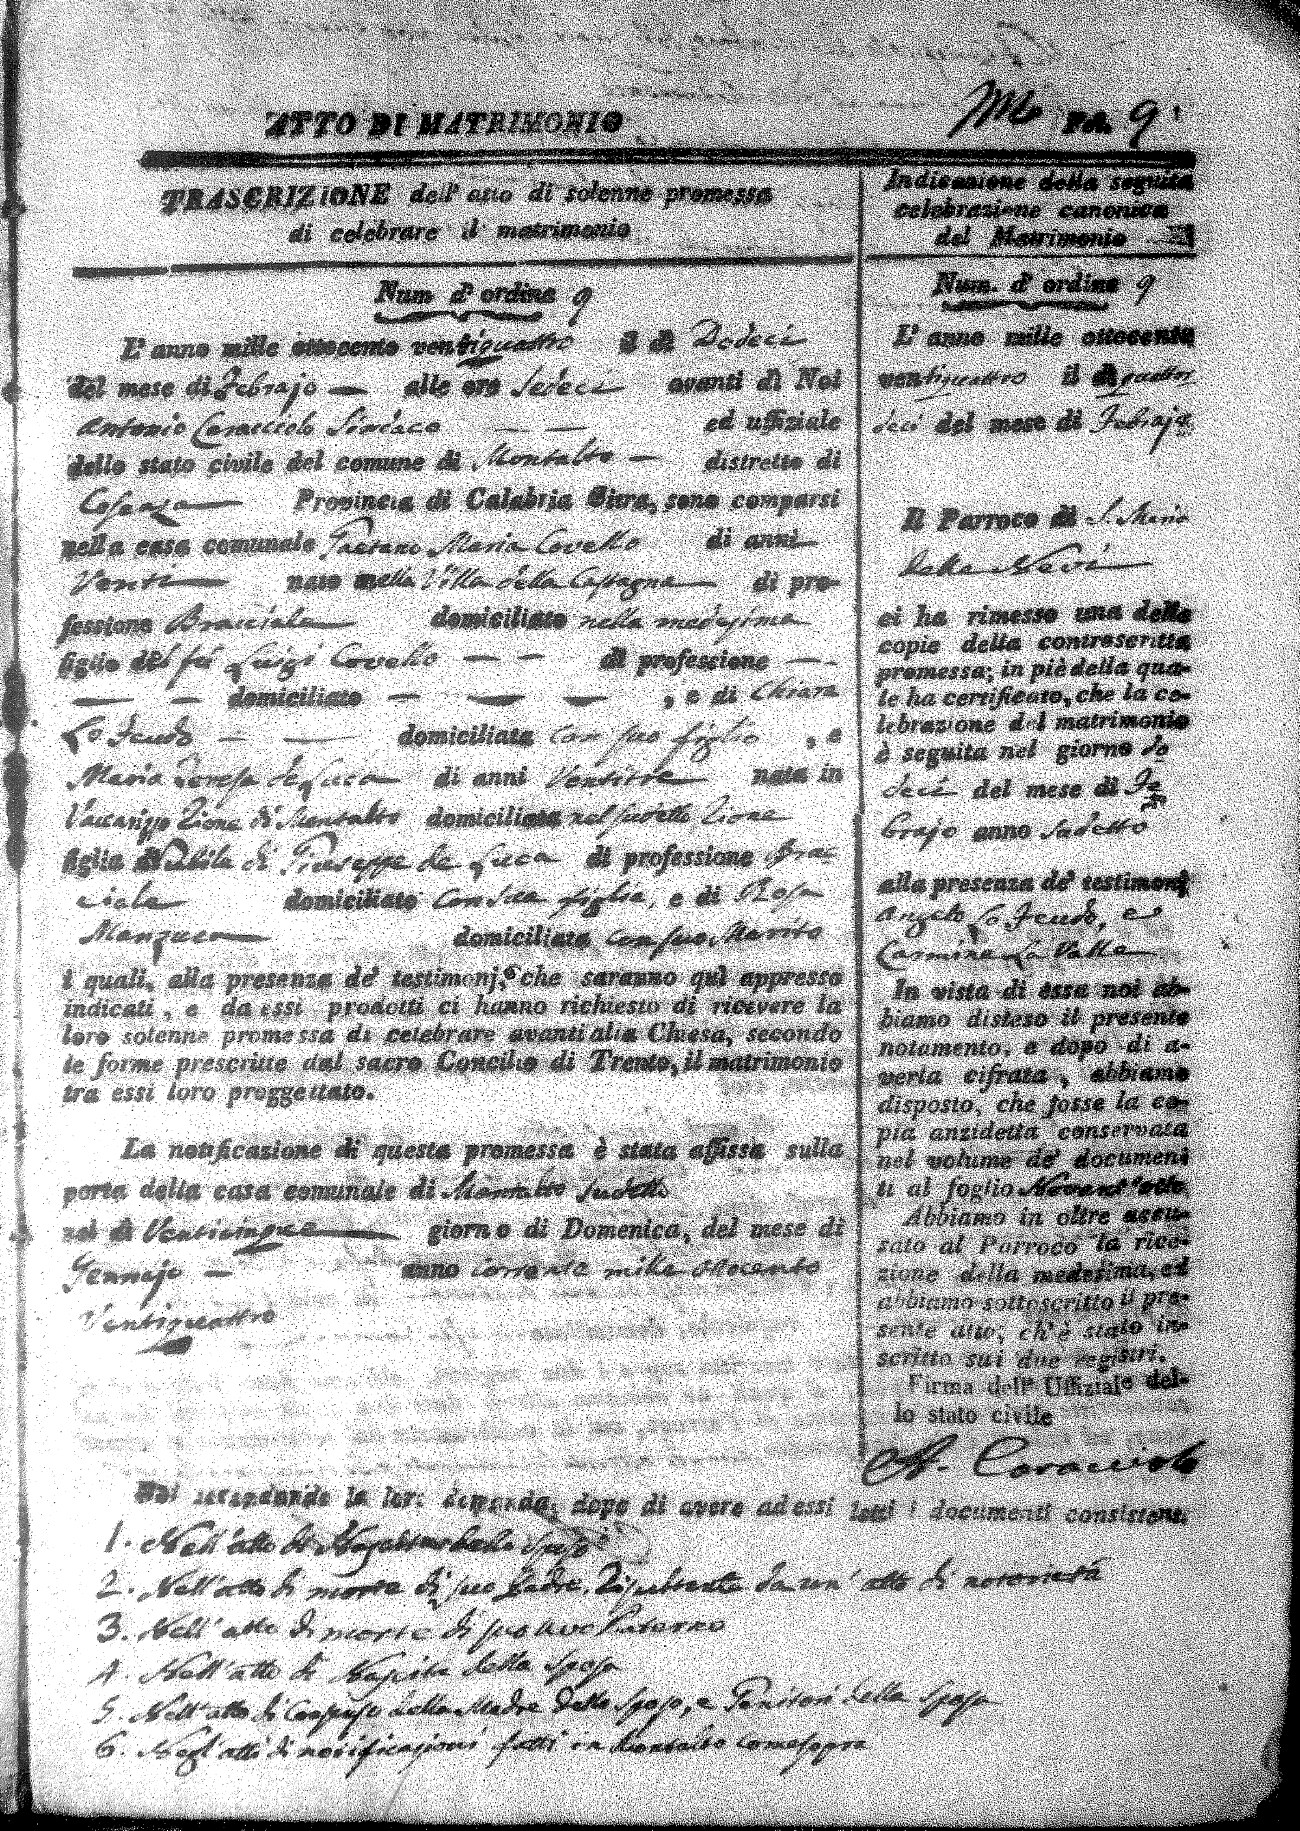 ATTO DI MATRIMONIO
PA. 9
TRASCRIZIONE dell' atto di solenne promessa
di celebrare il matrimonio
Num d' ordine 9
L' anno mille ottocento ventiquattro il dì Dodeci
del mese di Febrajo — alle ore sedeci avanti di Noi
Antonio Caracciolo Sindaco — — ed uffiziale
dello stato civile del comune di Montalto — distretto di
Cosenza Provincia di Calabria Citra, sono comparsi
nella casa comunale Gaetano Maria Covello di anni
Venti nato nella Villa della Castagna di pro-
fessione Bracciale domiciliato nella medesima
figlio del fu Luigi Covello — — di professione — —
— — domiciliato — — — , e di Chiara
Lo Feudo — — domiciliata con suo figlio , e
Maria Teresa de Luca di anni Ventitre nata in
l'accarizzo Rione di Montalto domiciliata nel sudetto Rione
figlia di Giuseppe de Luca di professione Brac
ciale domiciliato con sua figlia, e di Rosa
Manzuca domiciliata con suo Marito
i quali, alla presenza de' testimonj, che saranno quì appresso
indicati, e da essi prodotti ci hanno richiesto di ricevere la
loro solenne promessa di celebrare avanti alla Chiesa, secondo
le forme prescritte dal sacro Concilio di Trento, il matrimonio
tra essi loro proggettato.
La notificazione di questa promessa è stata affissa sulla
porta della casa comunale di Montalto sudetto
nel dì Venticinque giorno di Domenica, del mese di
Gennajo — anno corrente mille ottocento
Ventiquattro
Indicazione della seguita
celebrazione canonica
del Matrimonio
Num. d' ordine 9
L' anno mille ottocento
ventiquattro il dì quattor
deci del mese di Febrajo
Il Parroco di S. Maria
della Nevi
ci ha rimesso una delle
copie della controscritta
promessa; in piè della qua-
le ha certificato, che la ce-
lebrazione del matrimonio
è seguita nel giorno do
deci del mese di Fe
brajo anno sudetto
alla presenza de' testimonj
Angelo Lo Feudo, e
Carmine La Valle
In vista di essa noi ab-
biamo disteso il presente
notamento, e dopo di a-
verla cifrata, abbiamo
disposto, che fosse la co-
pia anzidetta conservata
nel volume de' documen-
ti al foglio Novant'otto
Abbiamo in oltre accu-
sato al Parroco la rice-
zione della medesima, ed
abbiamo sottoscritto il pre-
sente atto, ch' è stato in-
scritto sui due registri.
Firma dell' Uffiziale del-
lo stato civile
A. Caracciolo
Noi secondando la loro domanda, dopo di avere ad essi letti i documenti consistenti
1. Nell'atto di Nascita dello Sposo
2. Nell'atto di morte di suo Padre, da un' atto di notorietà
3. Nell'atto di morte di suo avo Paterno
4. Nell'atto di Nascita della Sposa
5. Nell'atto di Consenso della Madre dello Sposo, e Genitori della Sposa
6. Negl'atti di notificazioni fatti in Montalto come sopra